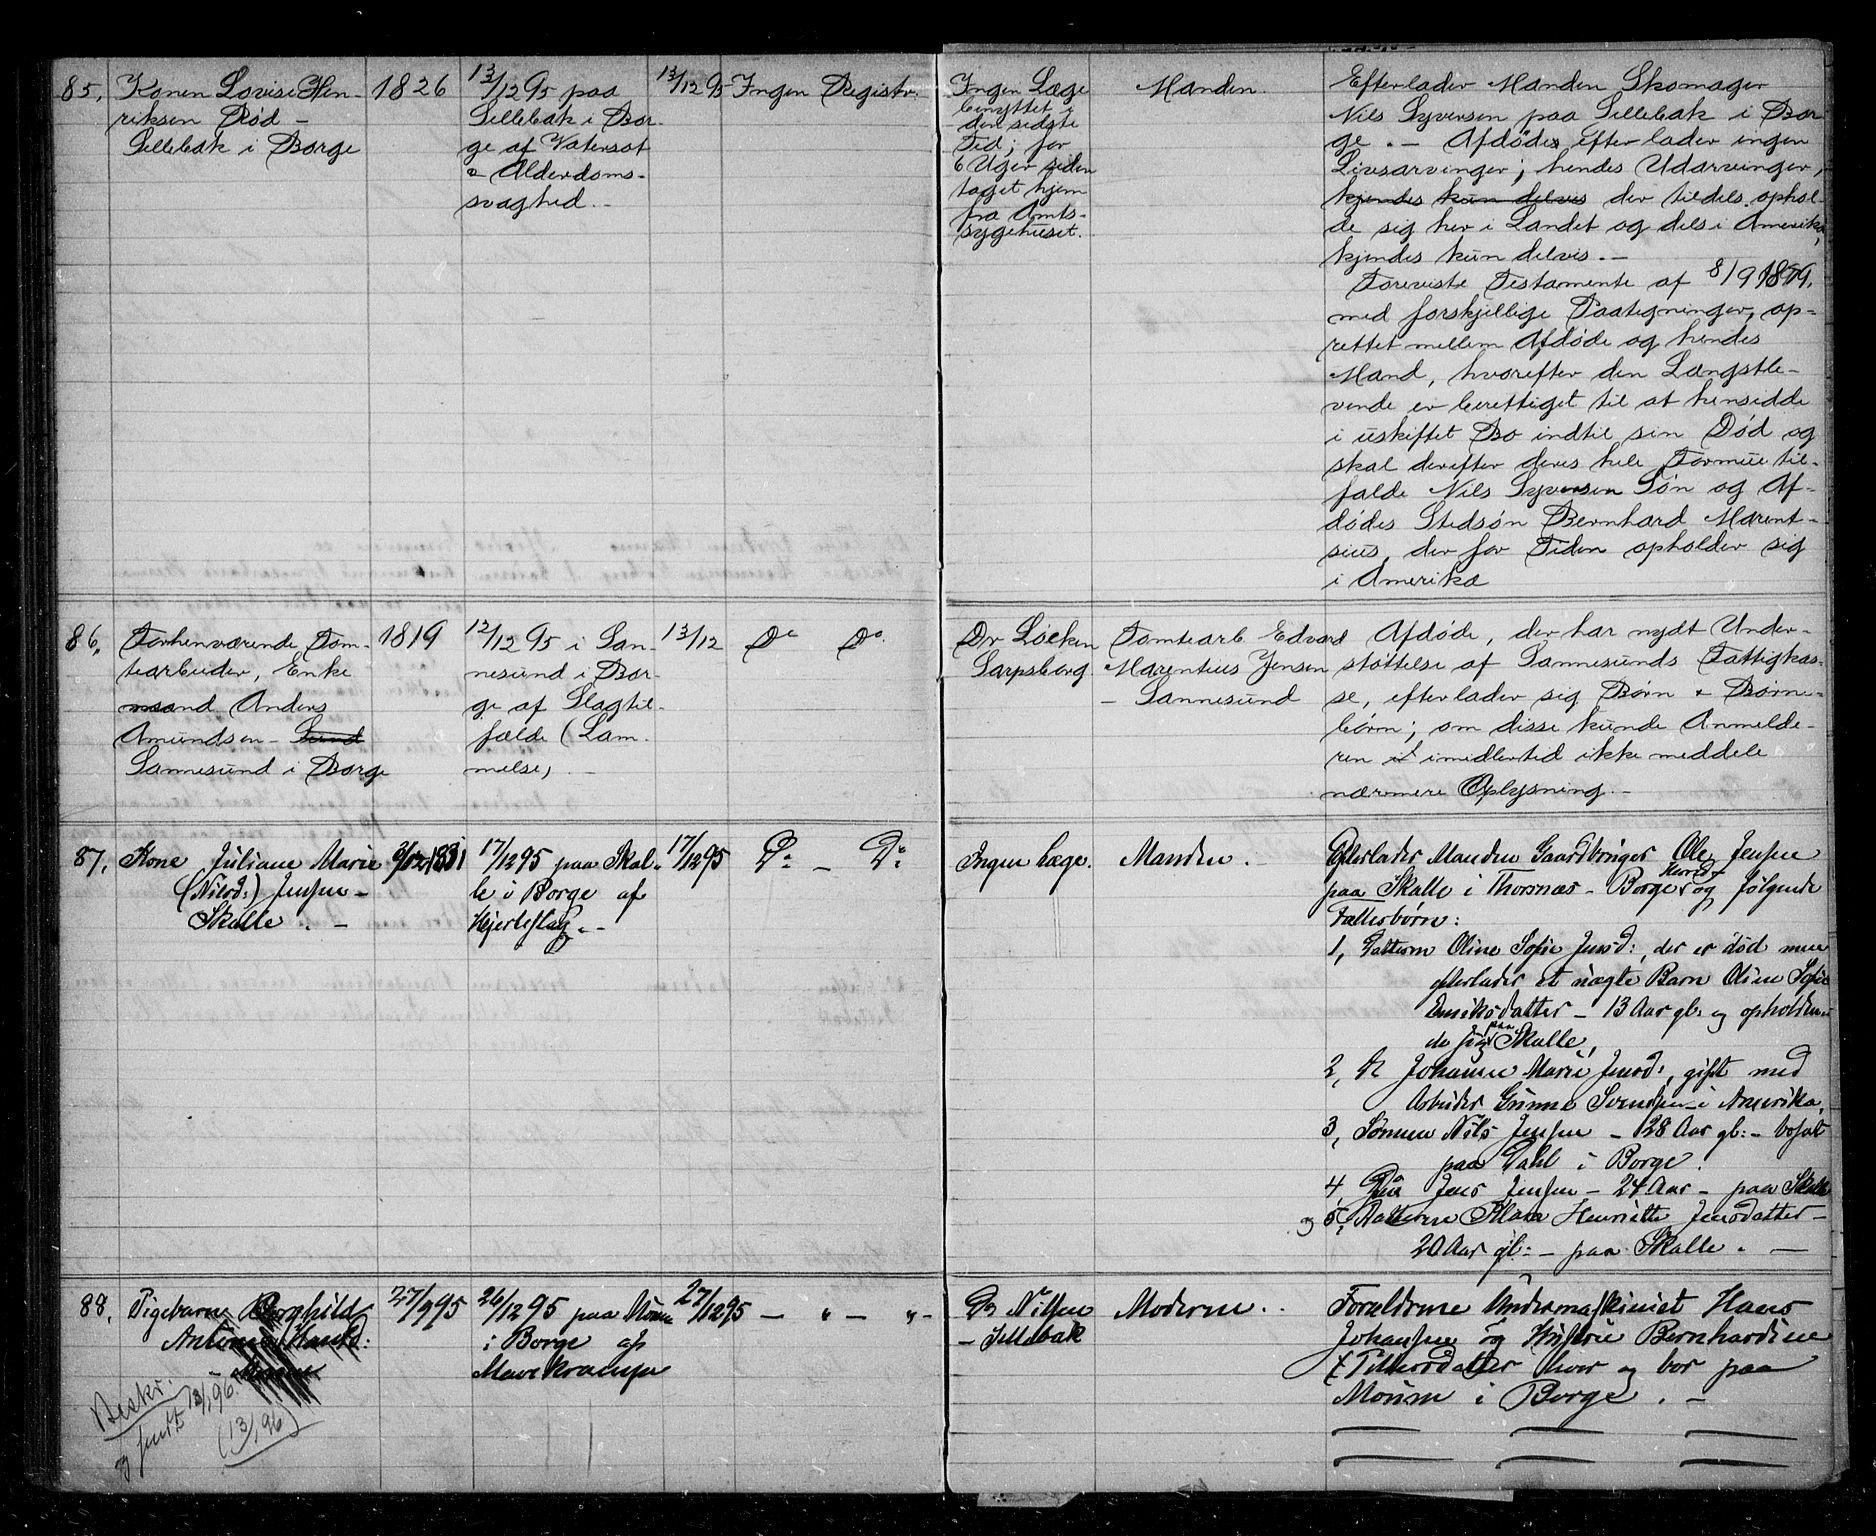 85, Konen Lovise Hen-
riksen Rød -
Sellebak i Borge
1826
13/12 95 paa
Sellebak i Bor-
ge af Vatersot
& Alderdoms-
svaghed. -
13/12 95
Ingen
Registr.
Ingen Læge
benyttet i
den sidste
Tid; for
6 Uger siden
taget hjem
fra Amts-
sygehuset.
Manden.
Efterlader Manden Skomager
Nils Syversen paa Sellebak i Bor-
ge. - Afdøde efterlader ingen
Livsarvinger; hendes Udarvinger,
kjendes kun delvis der tildels ophol-
de sig her i Landet og dels i Amerika,
kjendes kun delvis. -
Foreviste Testamente af 8/9 1879,
med forskjellige Paategninger, op-
rettet mellem Afdøde og hendes
Mand, hvorefter den Længstle-
vende er berettiget til at hensidde
i uskiftet Bo indtil sin Død og
skal derefter deres hele Formue til-
falde Nils Syversen Søn og Af-
dødes Stedsøn Bernhard Marent-
sius, der for Tiden opholder sig
i Amerika
86, Forhenværende Tom-
tearbeider, Enke
mand Anders
Amundsen - Sund
Sannesund i Borge
1819
12/12 95 i San-
nesund i Bor-
ge af Slagtil-
fælde (Lam-
melse)
13/12
Do
Do.
Dr Løcken
Sarpsborg
Tomtearb Edvard
Marentius Jensen
- Sannesund
Afdøde, der har nydt Under-
støttelse af Sannesunds Fattigkas-
se, efterlader sig Børn & Børne-
børn; om disse kunde Anmelde-
ren imidlertid ikke meddele
nærmere Oplysning. -
87, Kone Juliane Marie
(Nilsd:) Jensen -
Skalle. -
1831
17/12 95 paa Skal-
le i Borge af
Hjerteslag. -
17/12 95
Do -
Do
Ingen Læge.
Manden. -
Efterlader Manden Gaardbruger Ole Jensen
paa Skalle i Thorsnæs - Borge og følgende
Fællesbørn:
1, Datteren Oline Sofie Jensd:, der er død men
efterlader et uægte Barn Oline Sofie
- 13 Aar gl: og opholden-
de sig paa Skalle,
2, Johanne Marie Jensd:, gift med
Arbeider Gunne Svendsen - i Amerika,
3, Sønnen Nils Jensen - 28 Aar gl: - bosat
paa Dahl i Borge.
4, Do Jens Jensen - 24 Aar - paa Skalle
og 5, Datteren Klara Henriette Jensdatter -
20 Aar gl: - paa Skalle. -
88, Pigebarnet Borghild
Antonie Hansd:
- Moum
27/9 95
26/12 95 paa Moum
i Borge af
Mavekrampe
27/12 95
- " - " -
Dr Nilsen
- Sellebak
Moderen. -
Forældrene Undermaskinist Hans
Johansen og Hustru Bernhardine
Pettersdatter hver og bor paa
Moum i Borge. -
Beskr.
13/1 96.
(13/1 96)